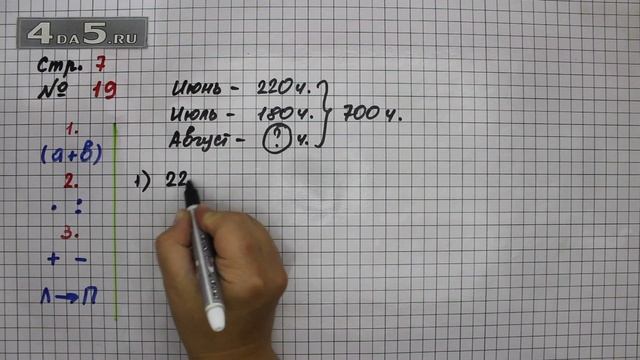 4DA5.RU
Стр. 7
№ 19
1.
(а+в)
2.
· :
3.
+ -
Л→П
Июнь - 220 ч.
Июль - 180 ч. } 700 ч.
Август - ? ч.
1) 22